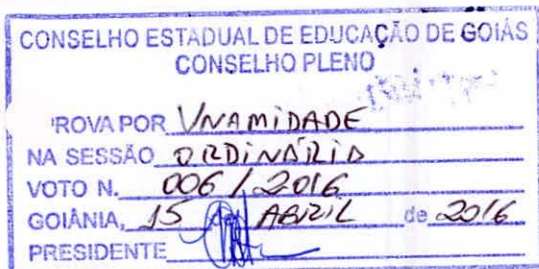 CONSELHO ESTADUAL DE EDUCAÇÃO DE GOIÁS
CONSELHO PLENO
'ROVA POR UNAMIDADE
NA SESSÃO ORDINÁRIA
VOTO N. 006 / 2016
GOIÂNIA, 15 ABRIL de 2016
PRESIDENTE